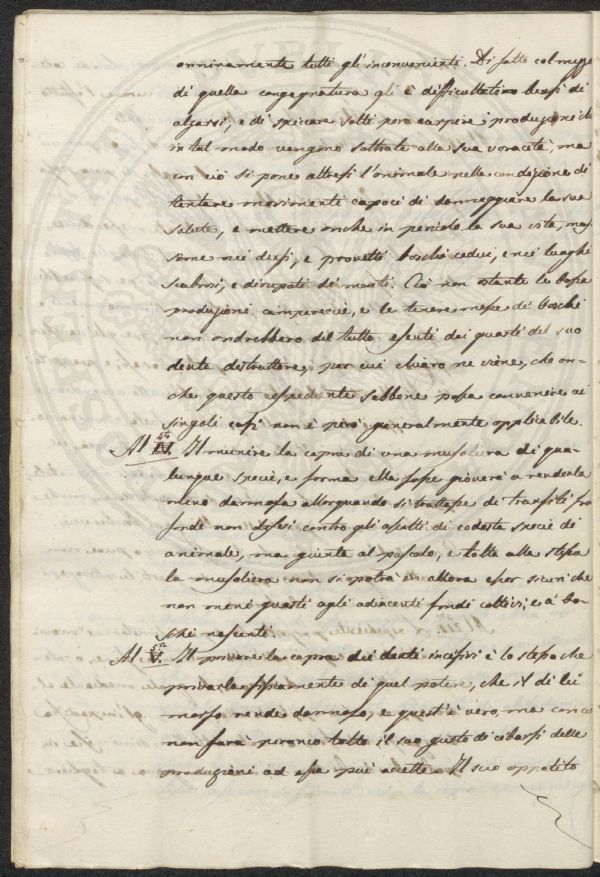 onninamente tutti gl'inconvenienti. Di fatto col mezzo
di quella congegnatura gli è difficultatino bensì di
alzarsi, e di spiccare salti però carpire i produzioni che
in tal modo vengono sottrate alla sua voracità, ma
con ciò si pone altresì l'animale nella condizione di
tentare movimenti capaci di danneggiare la sua
salute, e mettere anche in pericolo la sua vita, mas
sime nei densi, e provetti boschi cedui, e nei luoghi
scabrosi, e dirupati dei monti. Ciò non ostante le basse
produzioni campereccie, e le tenere messe di boschi
non andrebbero del tutto esenti dai guasti del suo
dente distruttore, per cui chiaro ne viene, che an=
che questo espediente sebbene possa convenire ai
singoli casi non è però generalmente applicabile.
Al 4to IV. Il munire la capra di una musoliera di qua-
lunque specie, e forma ella fosse gioverà a renderla
meno dannosa allorquando si trattasse di transiti fra
fondi non difesi contro gli assalti di codesta specie di
animale, ma giunta al pascolo, e tolta alla stessa
la musoliera non si potrà in allora esser sicuri che
non meni guasti agli adiacenti fondi coltivi, e a' bo-
schi nascenti.
Al 5to V. Il privare la capra dei denti incisivi è lo stesso che
privarla fisicamente di quel potere, che il di lei
morso rende dannoso, e quest'è vero, ma con ciò
non sarà peranco tolto il suo gusto di cibarsi delle
produzioni ad essa più accette. Il suo appetito